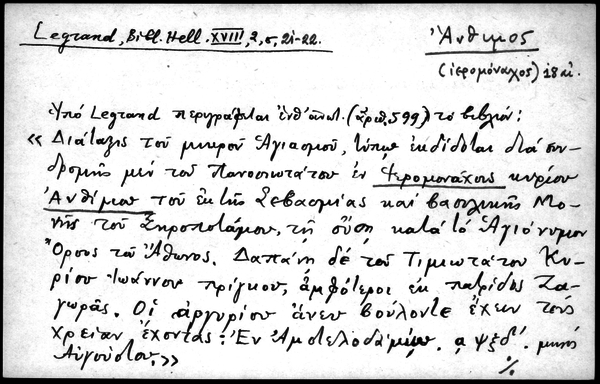 Legrand, Bibl. Hell. XVIII, 2, σ, 21-22.
Ἄνθιμος
(ἱερομόναχος) 18 αἰ.
Ὑπό Legrand περιγράφεται ἐνθ' ἀνωτ. (ἀριθ. 599) το βιβλίον:
« Διάταξις τοῦ μικροῦ Ἁγιασμοῦ, τύποις ἐκδίδοται διά συν-
δρομῆς μέν του Πανοσιωτάτου ἐν Ἱερομονάχοις κυρίου
Ἀνθίμου τοῦ ἐκ τῆς Σεβασμίας καί βασιλικῆς Μο-
νῆς τοῦ Ξηροποτάμου, τῇ οὔσῃ κατά τό Ἁγιώνυμον
Ὄρος τοῦ Ἄθωνος. Δαπάνῃ δέ τοῦ Τιμιωτάτου Κυ-
ρίου Ἰωάννου πρίγκου, ἀμφότεροι ἐκ πατρίδος Ζα-
γωρᾶς. Οἱ ἀργυρίου ἄνευ βούλοντε ἔχειν τούς
χρείαν ἔχοντας: Ἐν Ἀμστελοδάμῳ. αψξδ'. μηνός
Αὐγούστου. »
./.